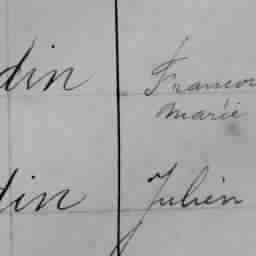 din Francoi
marie
din Julien